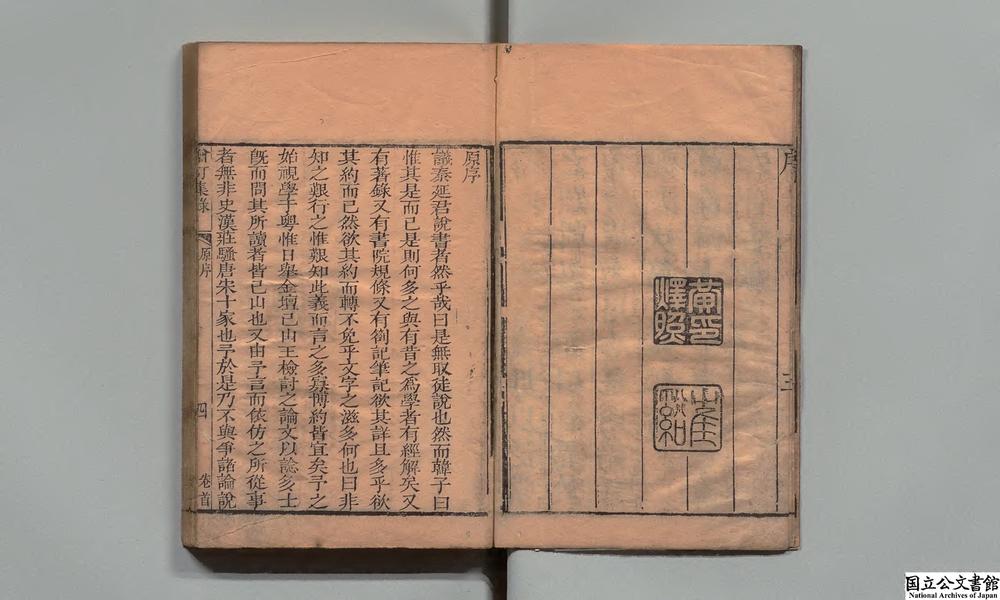 序
三
原序
議秦延君說書者然乎哉曰是無取徒說也然而韓子曰
惟其是而已是則何多之與有昔之爲學者有經解矣又
有著錄又有書院規條又有劄記筆記欲其詳且多乎欲
其約而已然欲其約而轉不免乎文字之滋多何也曰非
知之艱行之惟艱知此義而言之多寡博約皆宜矣予之
始視學于粤惟日舉金壇已山王檢討之論文以諗多士
旣而問其所讀者皆已山也又由予言而依仿之所從事
者無非史漢莊騷唐宋十家也予於是乃不與爭諸論說
訂集錄
原序
四
卷首
国立公文書館
National Archives of Japan